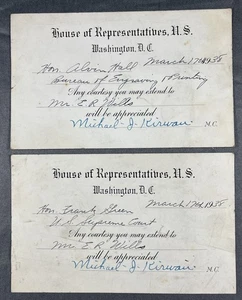 House of Representatives, U.S.
Washington, D.C.
March 17th 1938
Hon. Alvin Hall
Bureau of Engraving & Printing
Any courtesy you may extend to
Mr. E R Wells
will be appreciated
Michael J. Kirwan
M.C.
House of Representatives, U.S.
Washington, D.C.
March 17th 1938
Hon. Frank Green
U.S. Supreme Court
Any courtesy you may extend to
Mr. E R Wells
will be appreciated
Michael J. Kirwan
M.C.